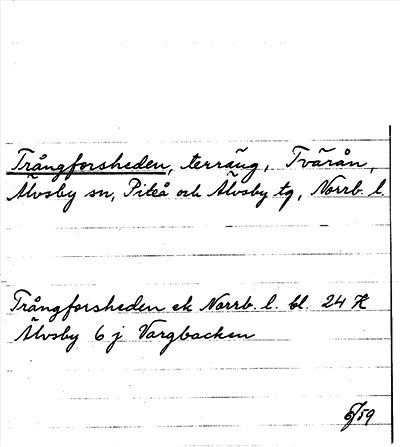 Trångforsheden, terräng, Tvärån,
Älvsby sn, Piteå och Älvsby tg, Norrb. l.
Trångforsheden ek Norrb. l. bl. 24 H
Älvsby 6 j Vargbacken
6/59